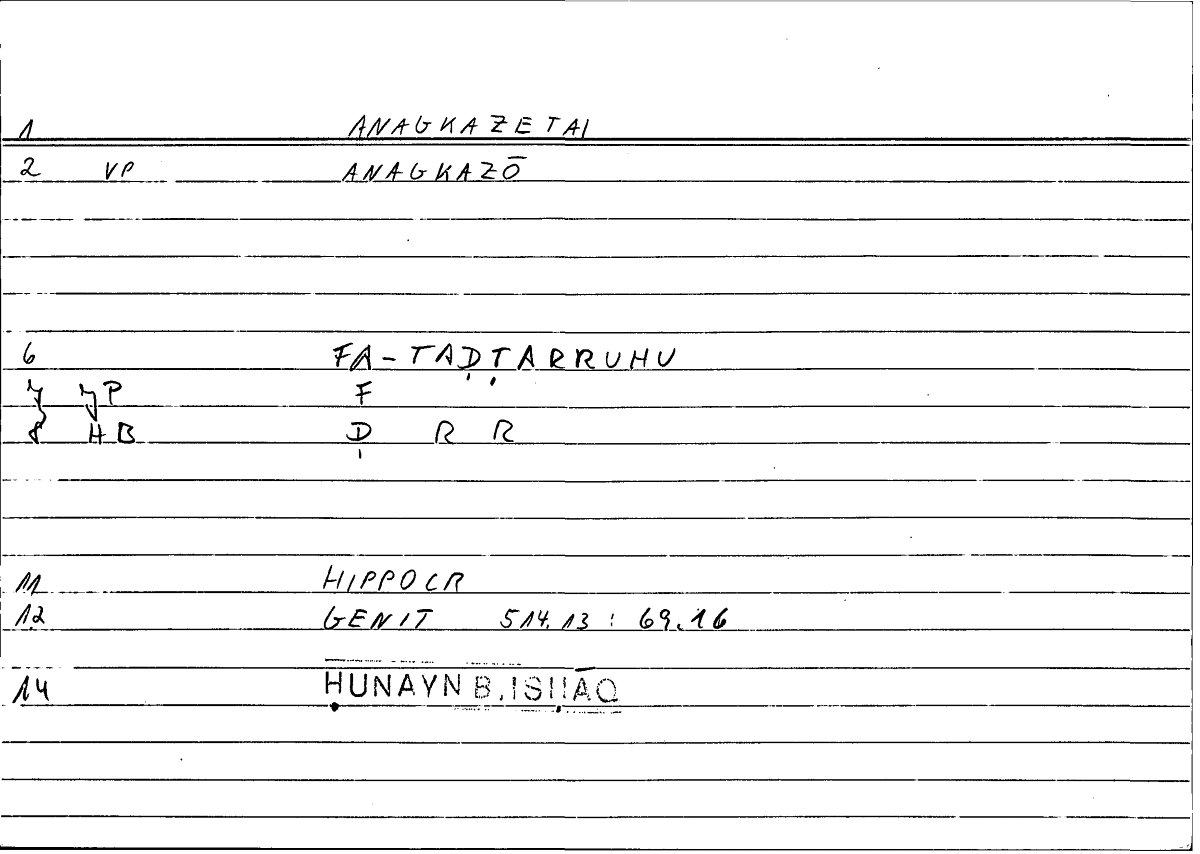 1 ANAGKAZETAI
2 VP ANAGKAZŌ
6 FA-TAḌṬARRUHU
7 F
8 HB Ḍ R R
11 HIPPOCR
12 GENIT 514.13 : 69.16
14 ḤUNAYN B. ISḤĀQ